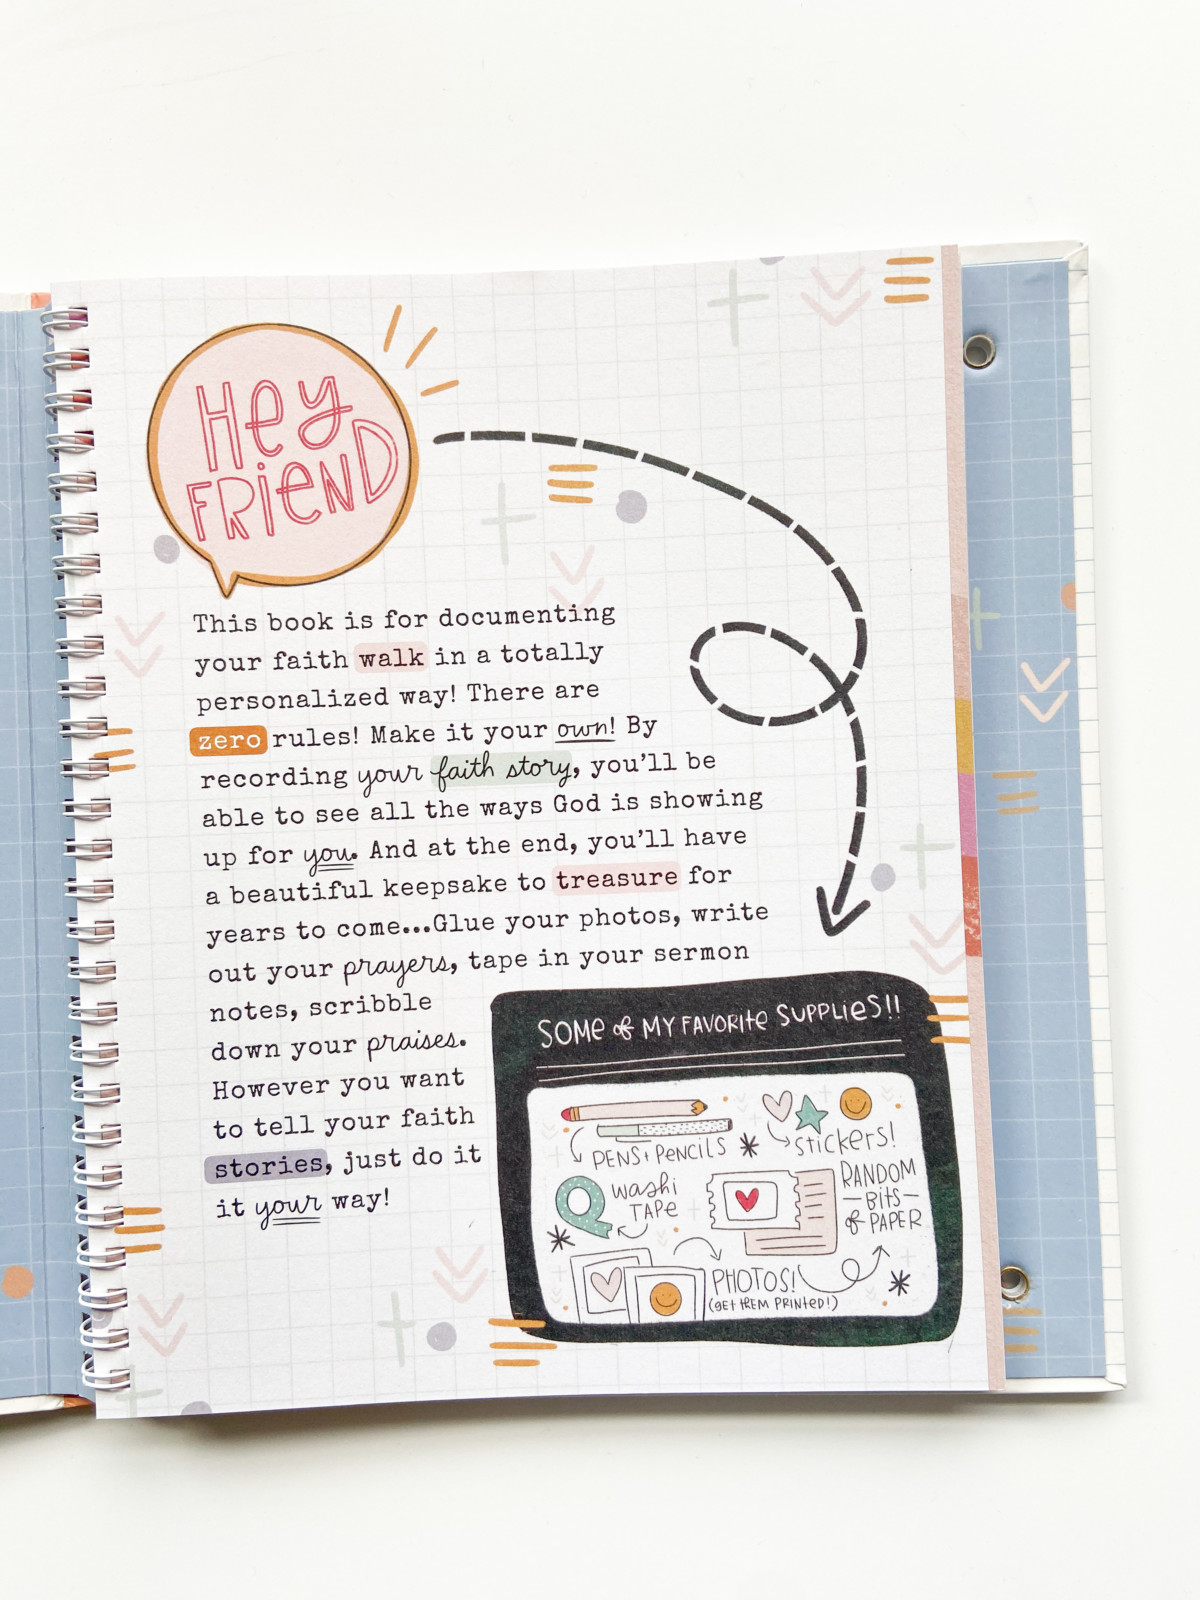 Hey
FRIEND
This book is for documenting
your faith walk in a totally
personalized way! There are
zero rules! Make it your own! By
recording your faith story, you'll be
able to see all the ways God is showing
up for you. And at the end, you'll have
a beautiful keepsake to treasure for
years to come...Glue your photos, write
out your prayers, tape in your sermon
notes, scribble
down your praises.
However you want
to tell your faith
stories, just do it
it your way!
SOME of MY FAVORITE SUPPLIES!!
PENS + PENCILS
STICKERS!
WASHI
TAPE
RANDOM
-BITS-
of PAPER
PHOTOS!
(GET THEM PRINTED!)